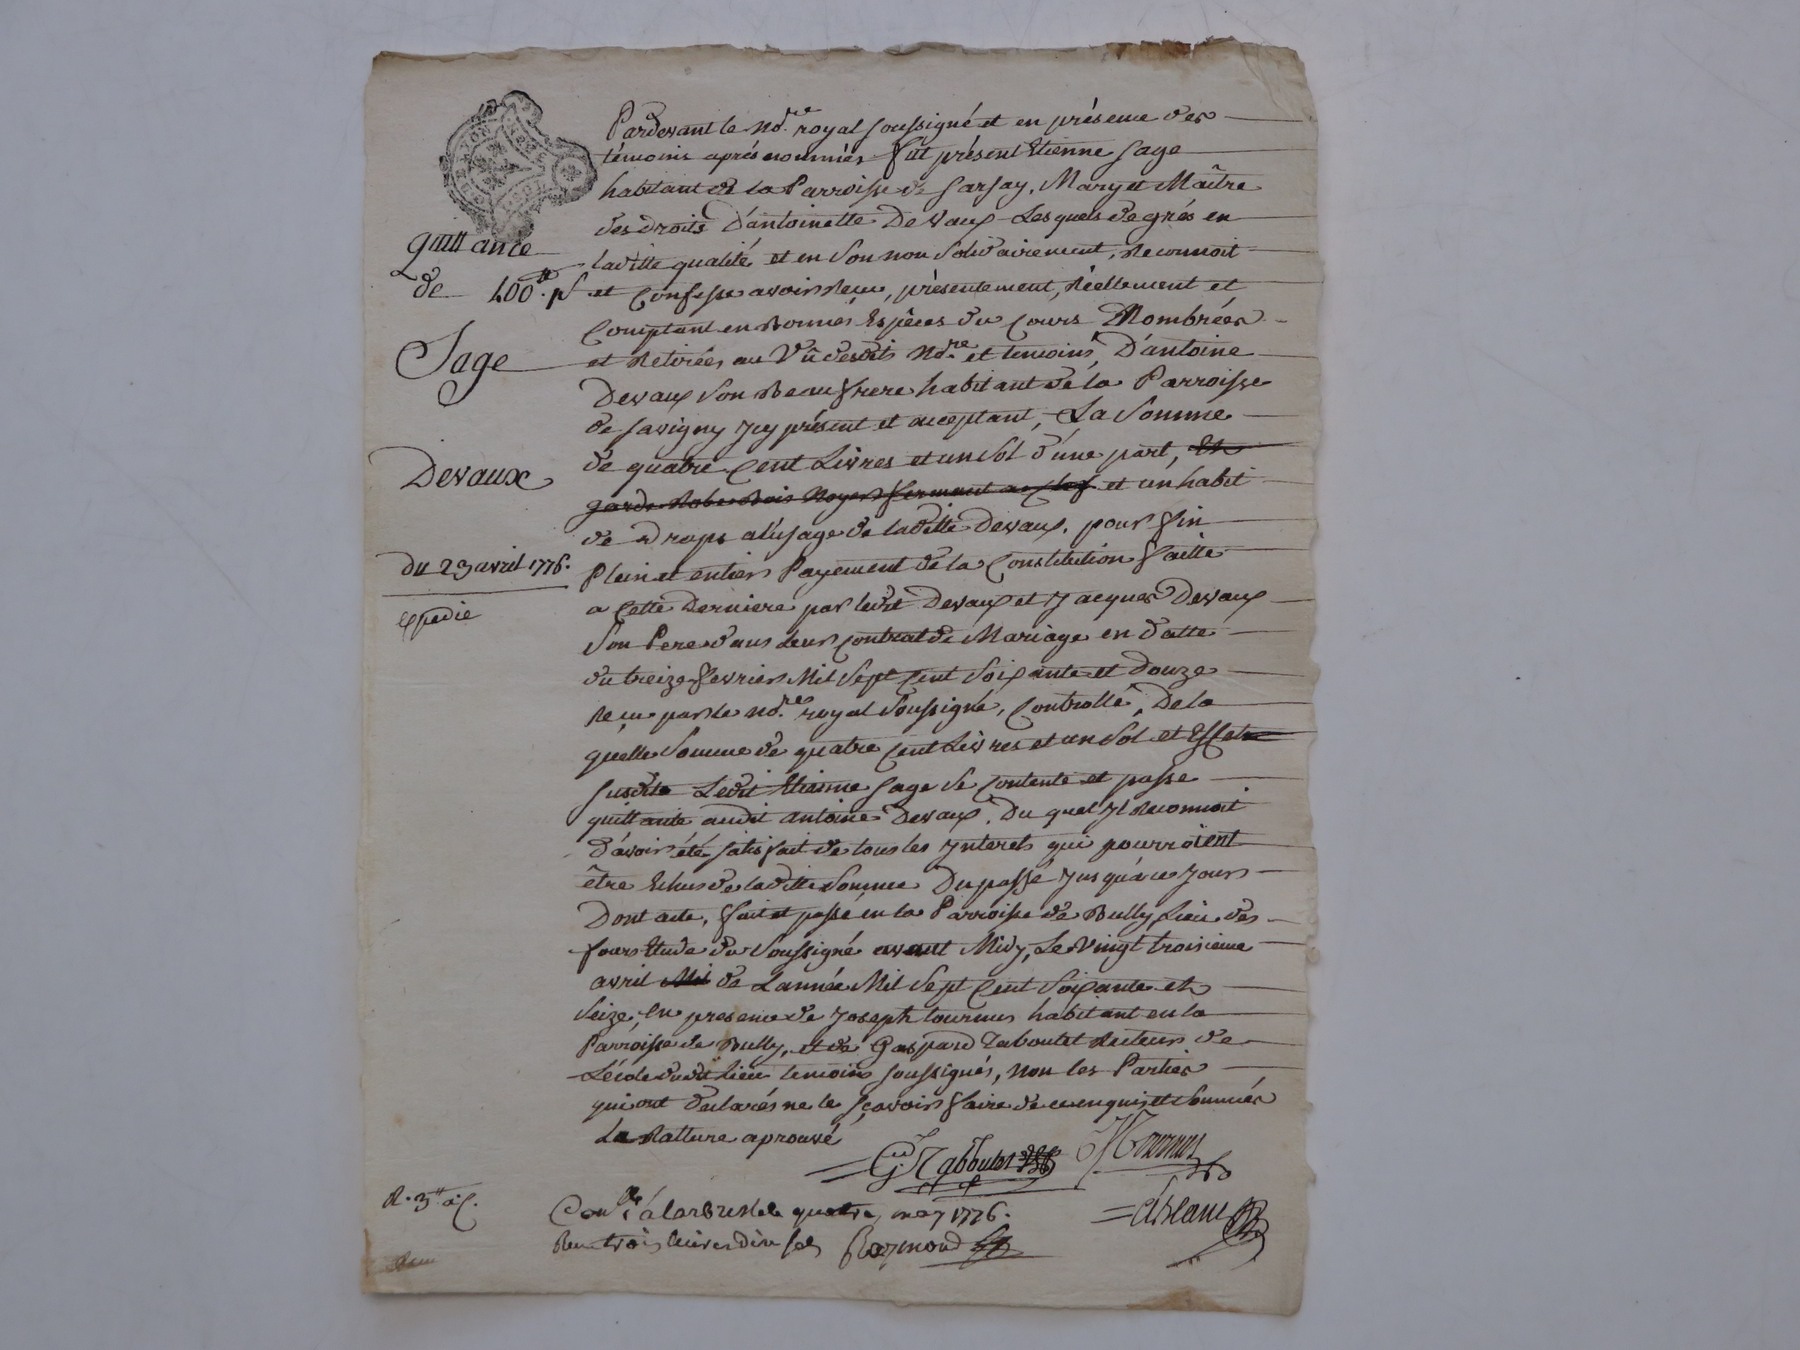 Pardevant le no.re royal soussigné et en présence des
témoins aprés nommés fut présent Etienne Sage
habitant de la Parroisse de Sarsay, Mary et Maître
des droits D'antoinette Devaux Lesquels de grés en
laditte qualité et en son non solidairement, Reconnoit
quittance
de 400.tt 1.s
et Confesse avoir Reçu, présentement, Réellement et
Comptant en Bonnes Espêces du Cours Nombrées
et Retirées au Vû desdits No.re et temoins, D'antoine
Sage
Devaux son Beaufrere habitant de la Parroisse
de Savigny Jcy présent et acceptant, La Somme
de quatre Cent Livres et un Sol d'une part, Un
Devaux
garde Robe Bois Noyer fermant a Clef et un habit
de Draps a l'usage de laditte Devaux, pour fin
du 23 avril 1776.
Plein et entier Payement de la Constitution faitte
expedié
a Cette Derniere par ledit Devaux et Jacques Devaux
Son Pere dans Leur Contrat de Mariage en datte
du treize fevrier Mil Sept Cent Soixante et Douze
Reçu par le No.re royal Soussigné, Controllé, De la
quelle Somme de quatre Cent Livres et un Sol et Effets
susdits Ledit Etienne Sage se Contente et passe
quittante audit Antoine Devaux, Du quel Jl Reconnoit
D'avoir été satisfait de tous les Jnterets qui pourroient
être Echus de laditte Somme Du passé Jusqu'à ce Jour
Dont acte, fait et passé en la Parroisse de Bully Lieu des
fours Etude du Soussigné avant Midy, Le Vingt troisieme
avril Mil de L'année Mil Sept Cent Soixante et
Seize, En presence de Joseph tournus habitant en la
Parroisse de Bully, et de Gaspard Taboulet Recteur de
L'école dudit Lieu temoins soussignés, Non les Parties
qui ont déclarés ne le sçavoir faire de ce enquis et Sommés
La Ratture aprouvé
G. Taboulet J Tournus
R. 3.tt a.C.
Con.lé à Larbresle le quatre may 1776.
Reçu trois livres dix sols Raymond